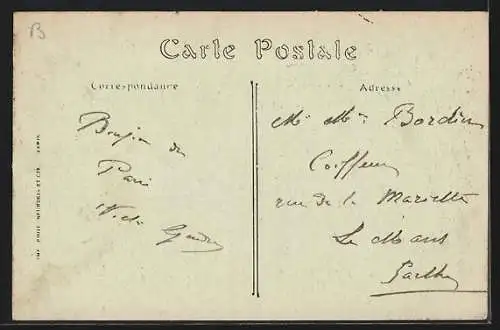 B
Carte Postale
Correspondance
Adresse
Bonjour de
Paris
M. Mme Bordin
Coiffeur
rue de la Mariette
Le Mans
Sarthe